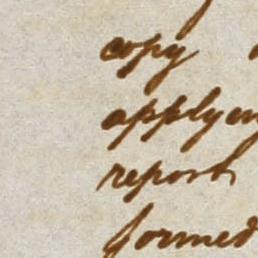 copy
applyin
report
formed